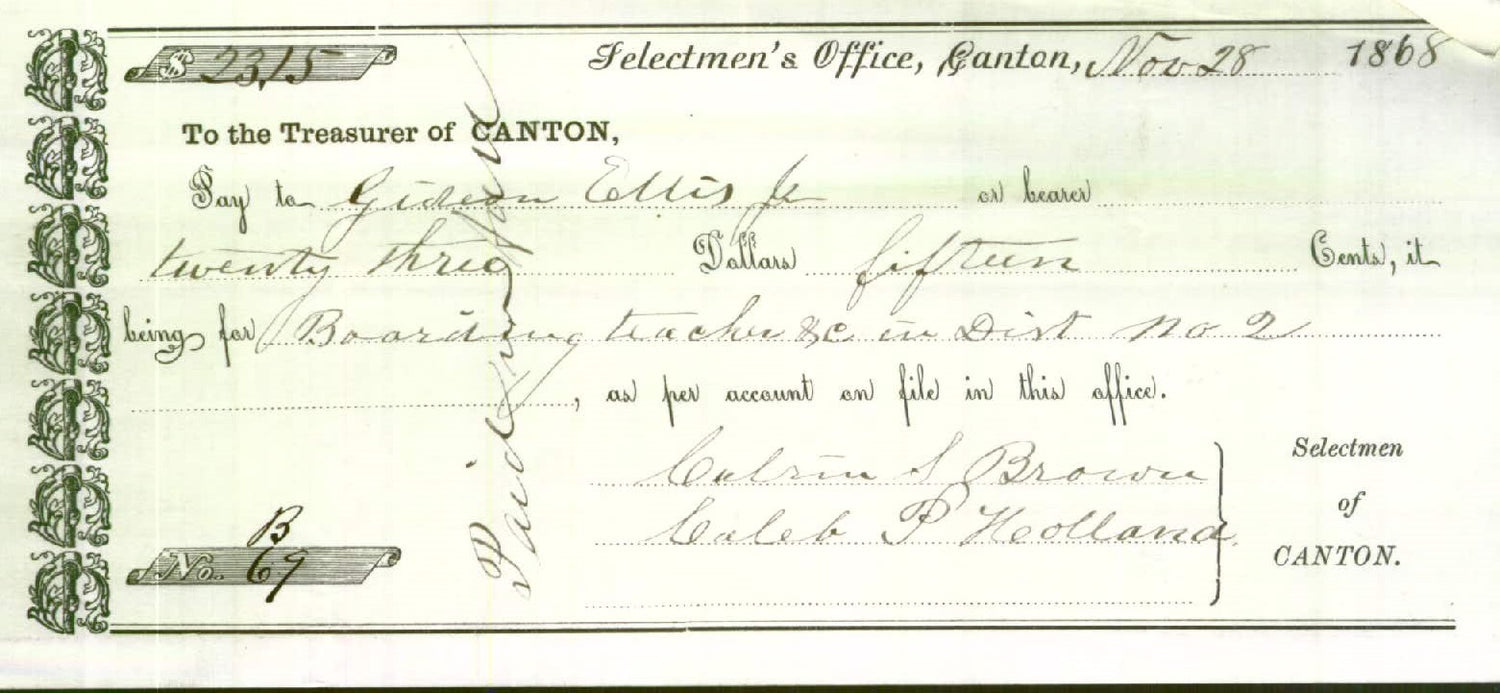 $ 23,15 Selectmen's Office, Canton, Nov 28 1868
To the Treasurer of CANTON,
Pay to Gideon Ellis Jr or bearer
twenty three Dollars fifteen Cents, it
being for Boarding teacher &c in Dist No 2
, as per account on file in this office.
Calvin S Brown
Caleb P Holland
Selectmen
of
CANTON.
B
No. 69
Paid